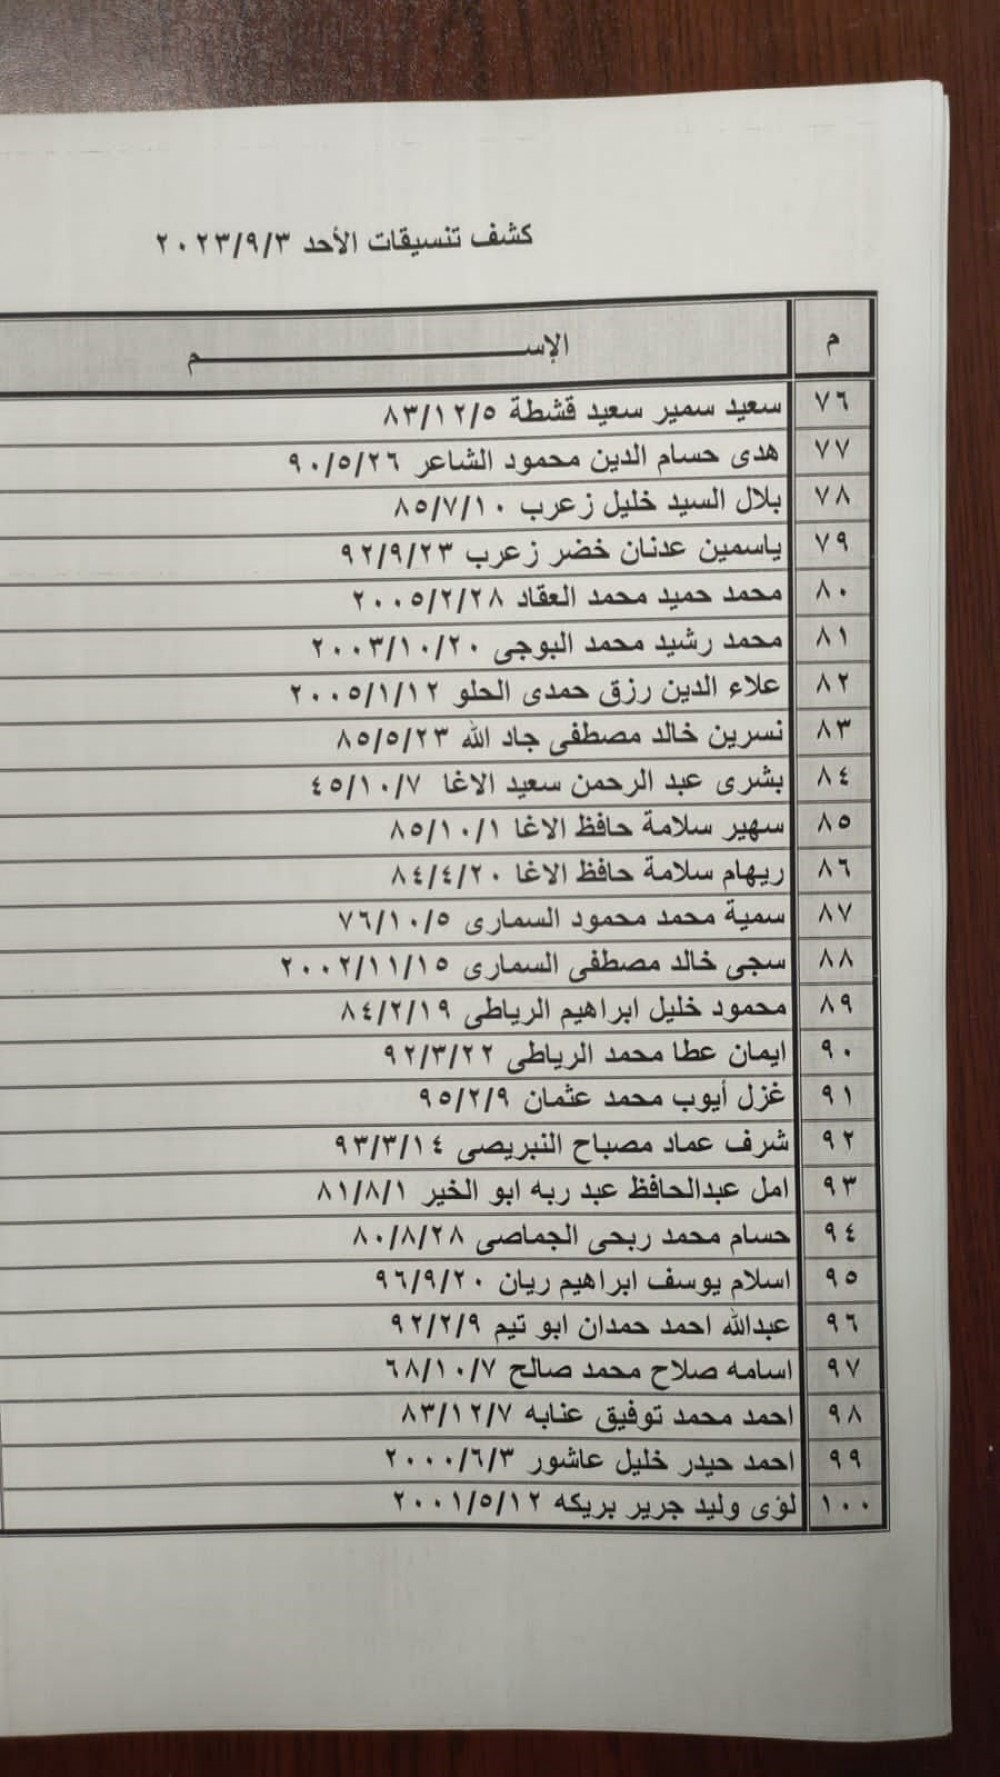 كشف تنسيقات الأحد ٢٠٢٣/٩/٣
م الإســـــــــم
٧٦ سعيد سمير سعيد قشطة ٨٣/١٢/٥
٧٧ هدى حسام الدين محمود الشاعر ٩٠/٥/٢٦
٧٨ بلال السيد خليل زعرب ٨٥/٧/١٠
٧٩ ياسمين عدنان خضر زعرب ٩٢/٩/٢٣
٨٠ محمد حميد محمد العقاد ٢٠٠٥/٢/٢٨
٨١ محمد رشيد محمد البوجى ٢٠٠٣/١٠/٢٠
٨٢ علاء الدين رزق حمدى الحلو ٢٠٠٥/١/١٢
٨٣ نسرين خالد مصطفى جاد الله ٨٥/٥/٢٣
٨٤ بشرى عبد الرحمن سعيد الاغا ٤٥/١٠/٧
٨٥ سهير سلامة حافظ الاغا ٨٥/١٠/١
٨٦ ريهام سلامة حافظ الاغا ٨٤/٤/٢٠
٨٧ سمية محمد محمود السمارى ٧٦/١٠/٥
٨٨ سجى خالد مصطفى السمارى ٢٠٠٢/١١/١٥
٨٩ محمود خليل ابراهيم الرياطى ٨٤/٢/١٩
٩٠ ايمان عطا محمد الرياطى ٩٢/٣/٢٢
٩١ غزل أيوب محمد عثمان ٩٥/٢/٩
٩٢ شرف عماد مصباح النبريصى ٩٣/٣/١٤
٩٣ امل عبدالحافظ عبد ربه ابو الخير ٨١/٨/١
٩٤ حسام محمد ربحى الجماصى ٨٠/٨/٢٨
٩٥ اسلام يوسف ابراهيم ريان ٩٦/٩/٢٠
٩٦ عبدالله احمد حمدان ابو تيم ٩٢/٢/٩
٩٧ اسامه صلاح محمد صالح ٦٨/١٠/٧
٩٨ احمد محمد توفيق عنابه ٨٣/١٢/٧
٩٩ احمد حيدر خليل عاشور ٢٠٠٠/٦/٣
١٠٠ لؤى وليد جرير بريكه ٢٠٠١/٥/١٢